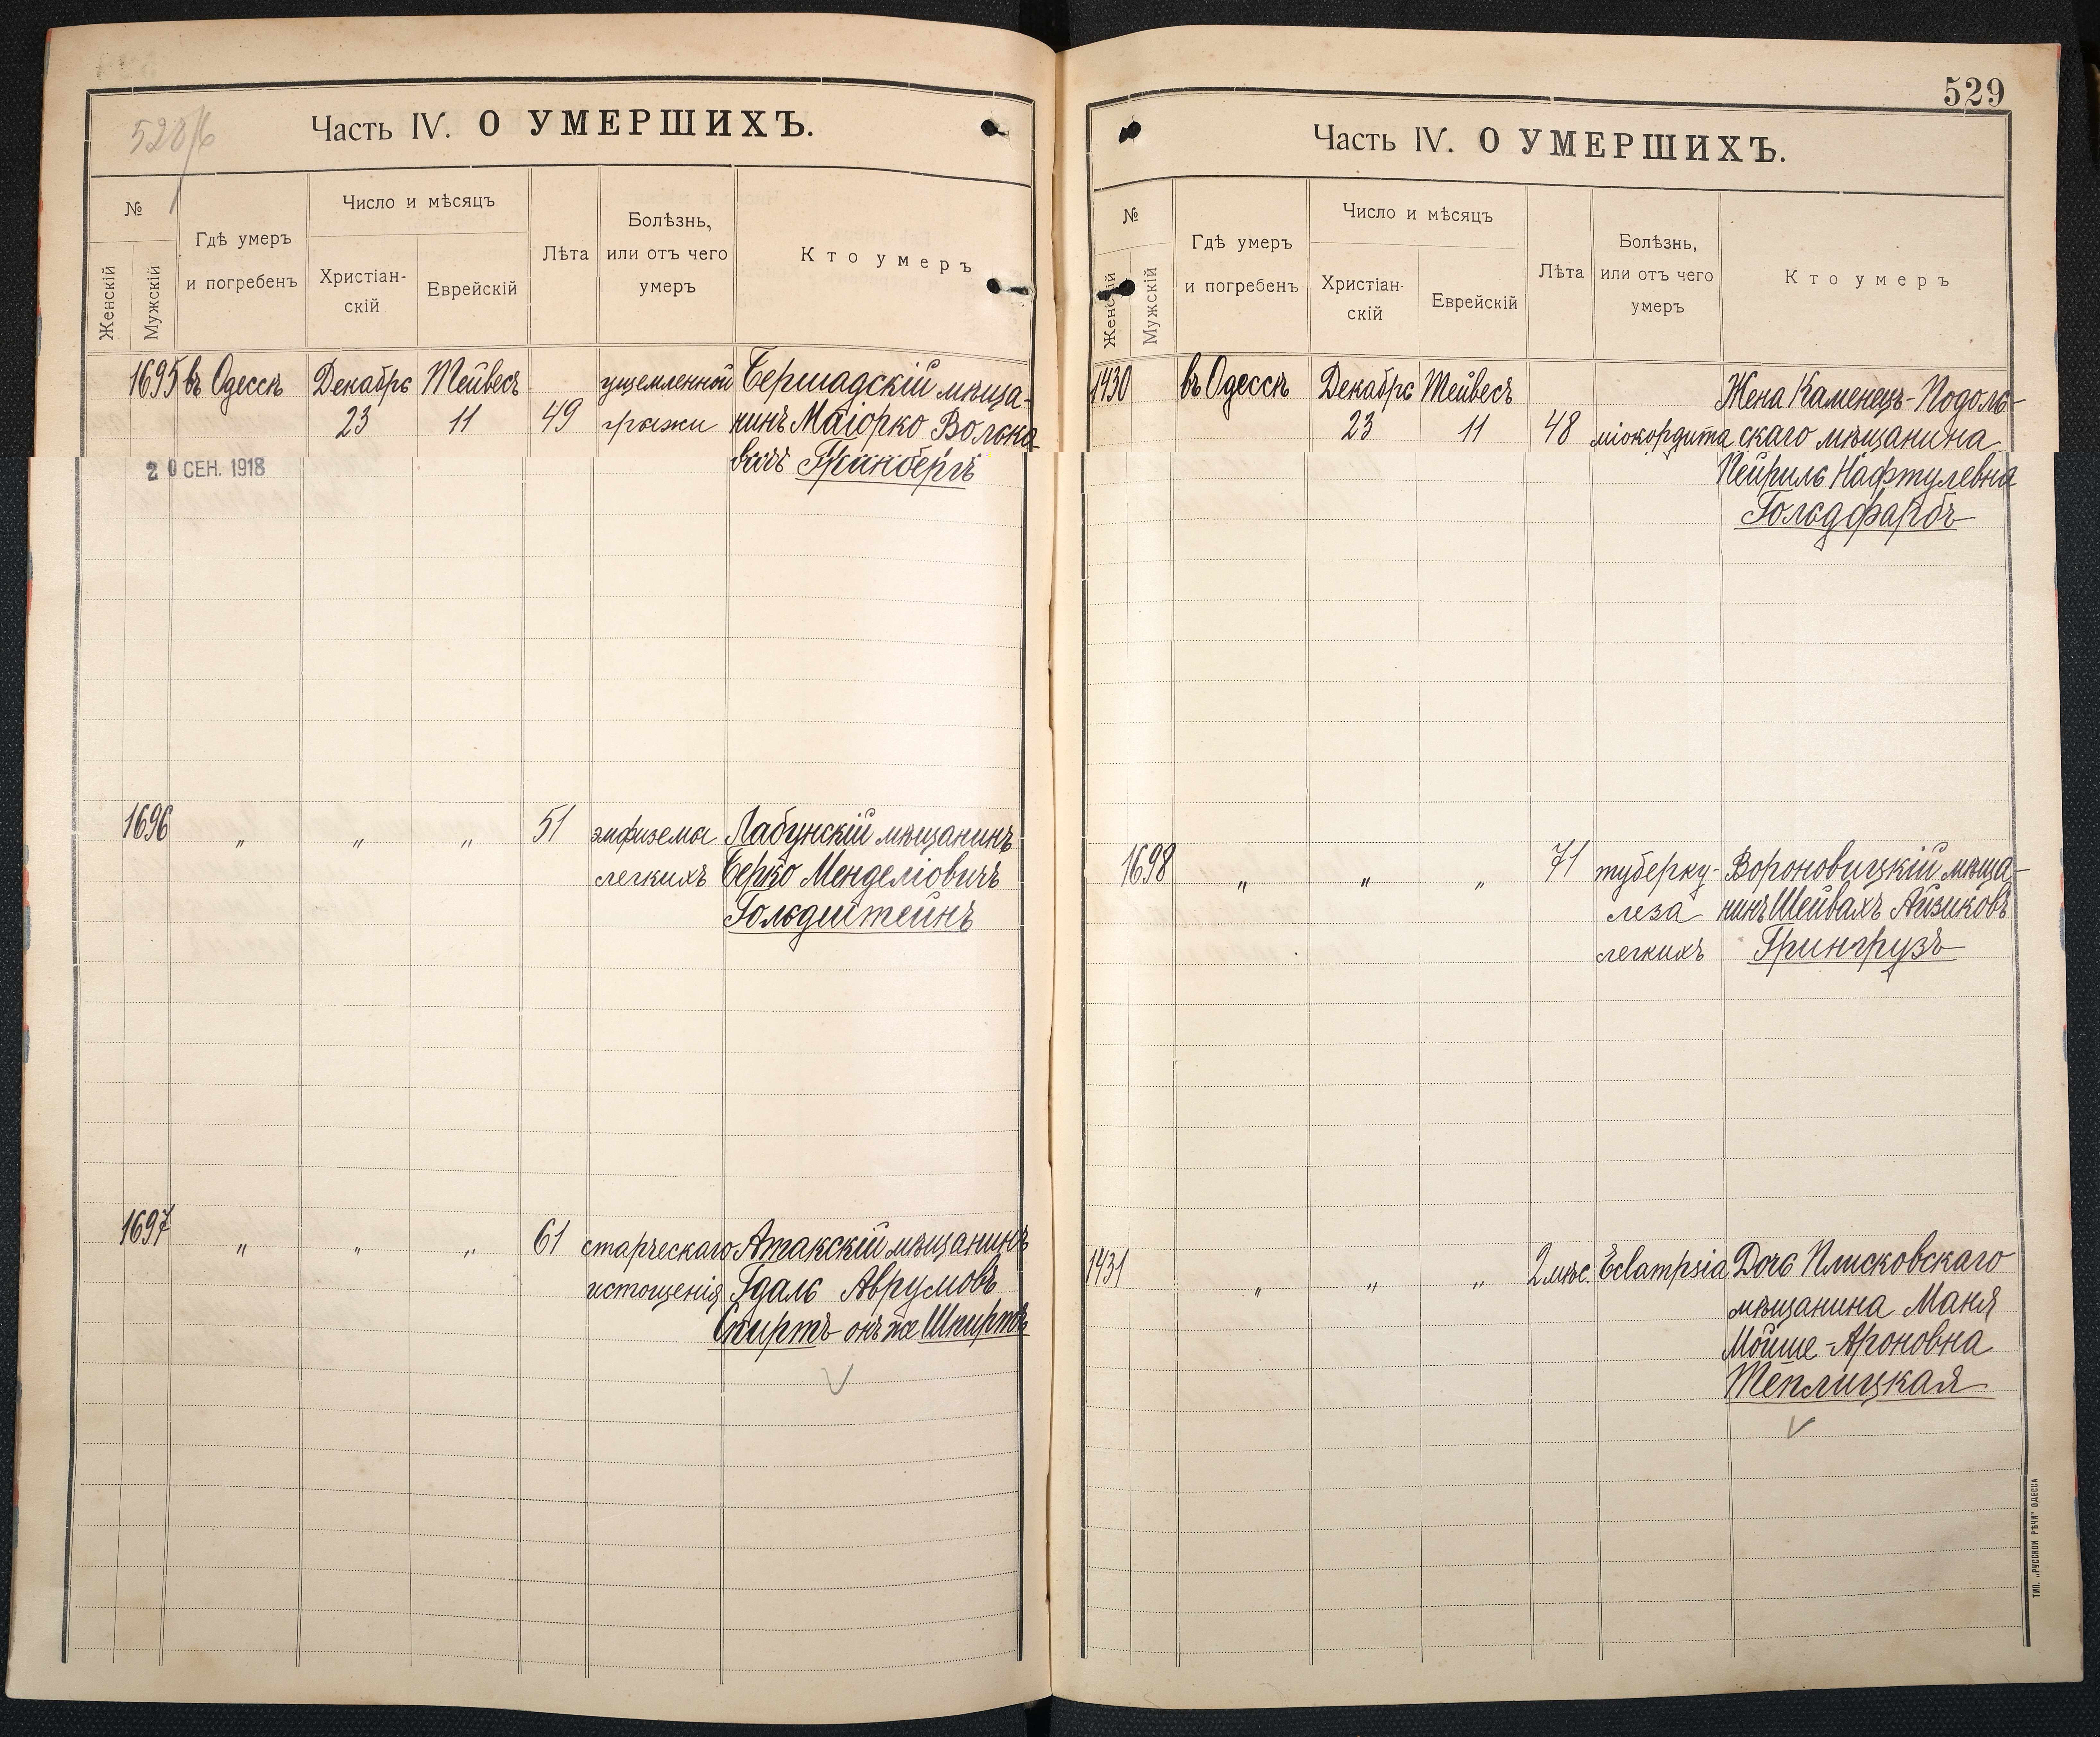 528/б
Часть IV. О УМЕРШИХЪ.
№
Женскій
Мужскій
Гдѣ умеръ
и погребенъ
Число и мѣсяцъ
Христіан-
скій
Еврейскій
Лѣта
Болѣзнь,
или отъ чего
умеръ
Кто умеръ
1695 въ Одессѣ Декабрь Тейвесъ ущемленной Бершадскій мѣща-
23 11 49 грыжи нинъ Маіорко Волько
вичъ Гринбергъ
20 СЕН. 1918
1696 " " " 51 эмфизема Лабунскій мѣщанинъ
легкихъ Берко Менделіовичъ
Гольдштейнъ
1697 " " " 61 старческаго Атакскій мѣщанинъ
истощенія Гдаль Аврумовъ
Спиртъ онъ же Шпиртъ
529
Часть IV. О УМЕРШИХЪ.
№
Женскій
Мужскій
Гдѣ умеръ
и погребенъ
Число и мѣсяцъ
Христіан-
скій
Еврейскій
Лѣта
Болѣзнь,
или отъ чего
умеръ
Кто умеръ
1430 въ Одессѣ Декабрь Тейвесъ Жена Каменецъ-Подоль-
23 11 48 міокордита скаго мѣщанина
Пейриль Нафтулевна
Гольдфарбъ
1698 " " " 71 туберку- Вороновицкій мѣща-
леза нинъ Шейвахъ Айзиковъ
легкихъ Грингрузъ
1431 " " " 2 мѣс. Eclampsia Дочь Плисковскаго
мѣщанина Маня
Мойше-Ароновна
Теплицкая
ТИП. „РУССКОЙ РѢЧИ" ОДЕССА